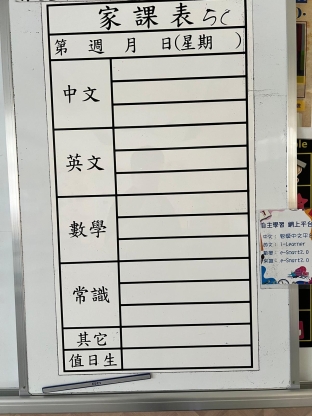 家課表 5C
第 週 月 日(星期 )
中文
英文
數學
常識
其它
值日生
自主學習 網上平台
英文： i-Learner
數學： e-Smart2.0
常識： e-Smart2.0